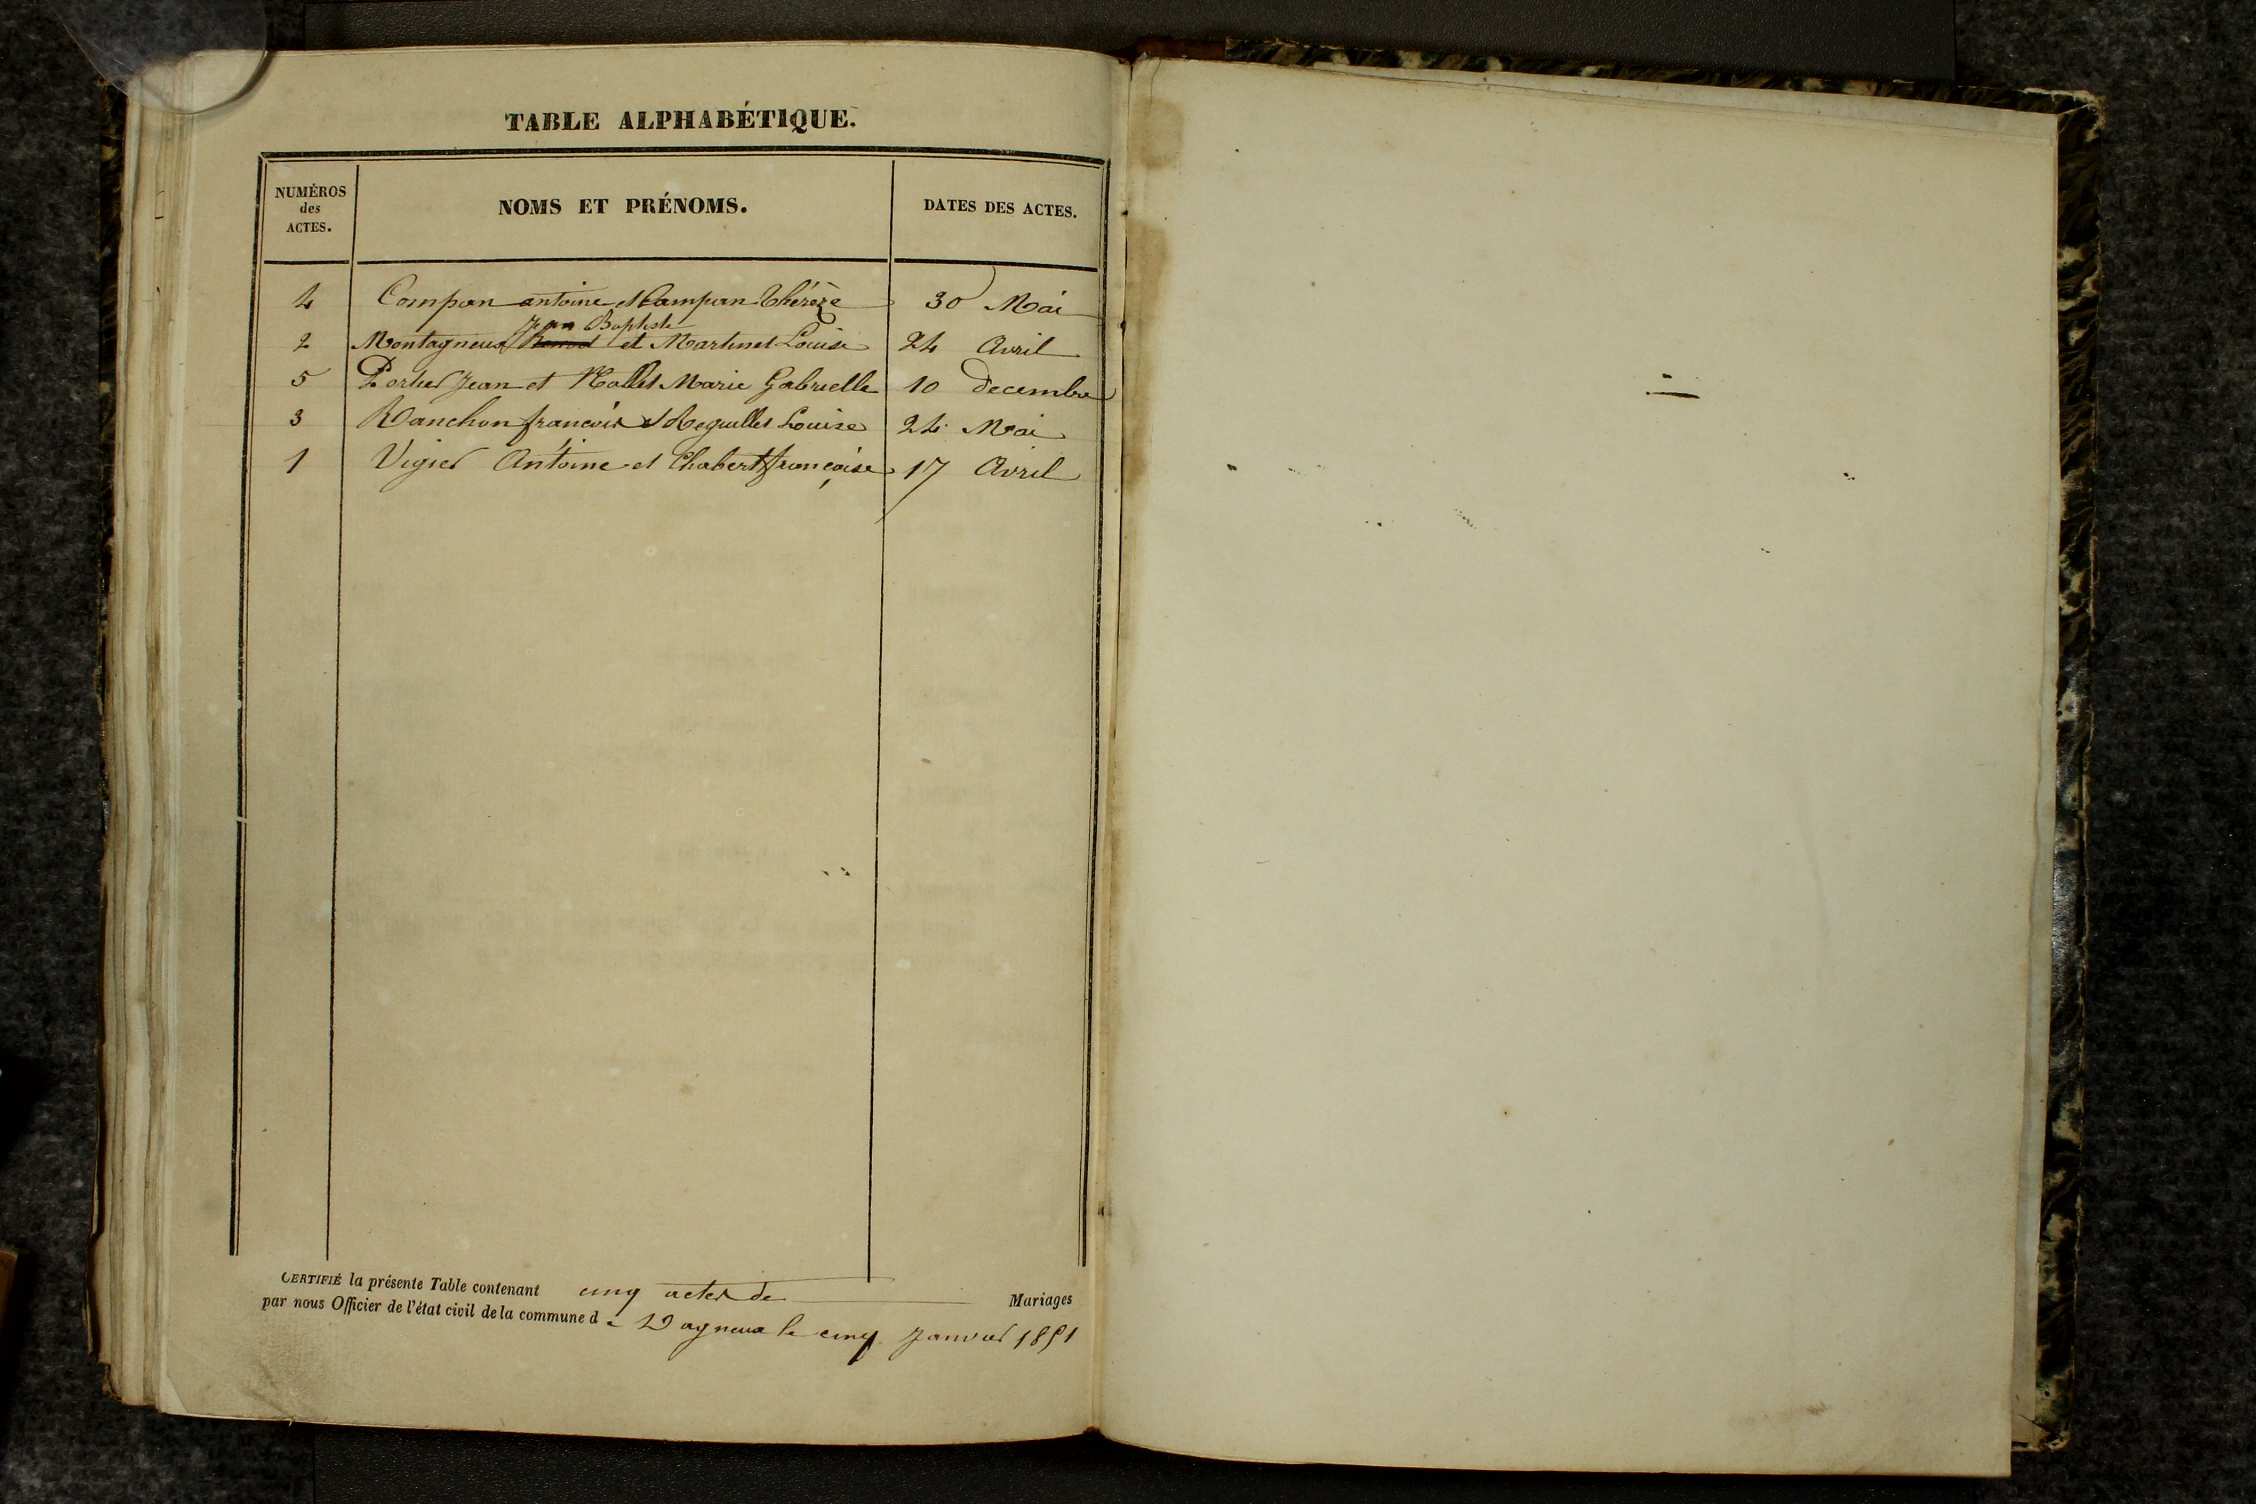 TABLE ALPHABÉTIQUE.
NUMÉROS des ACTES. NOMS ET PRÉNOMS. DATES DES ACTES.
4 Compan antoine et Campan Thérèze 30 Mai
Jean Baptiste
2 Montagneux et Martinet Louise 24 Avril
5 Portier Jean et Mollet Marie Gabrielle 10 decembre
3 Manchon francois et Louise 24 Mai
1 Vigier Antoine et Chabert françoise 17 Avril
CERTIFIÉ la présente Table contenant cinq actes de Mariages
par nous Officier de l'état civil de la commune de Dagneux le cinq Janvier 1851